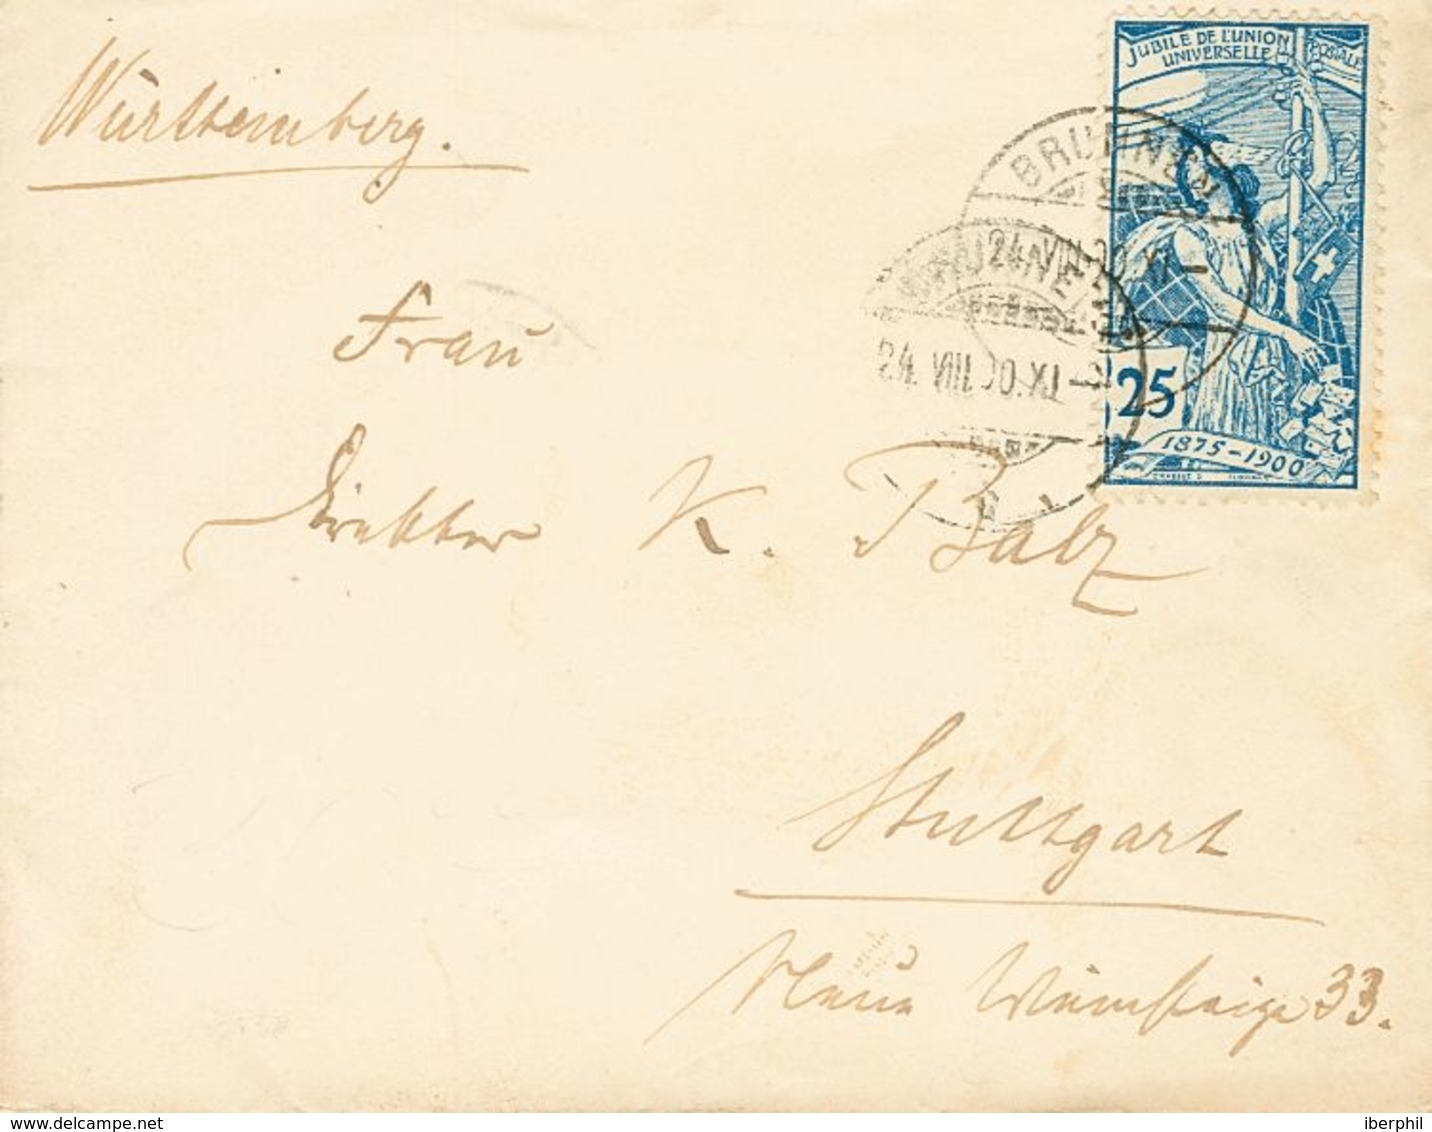 Württemberg.
JUBILÉ DE L'UNION POSTALE
UNIVERSELLE
BRUNNEN
24. VIII. 00. XI
BRUNNEN
24. VIII. 00. XI
25
1875–1900
Frau
Direktor K. Balz
Stuttgart
Neue Weinsteige 33.
www.delcampe.net
iberphil